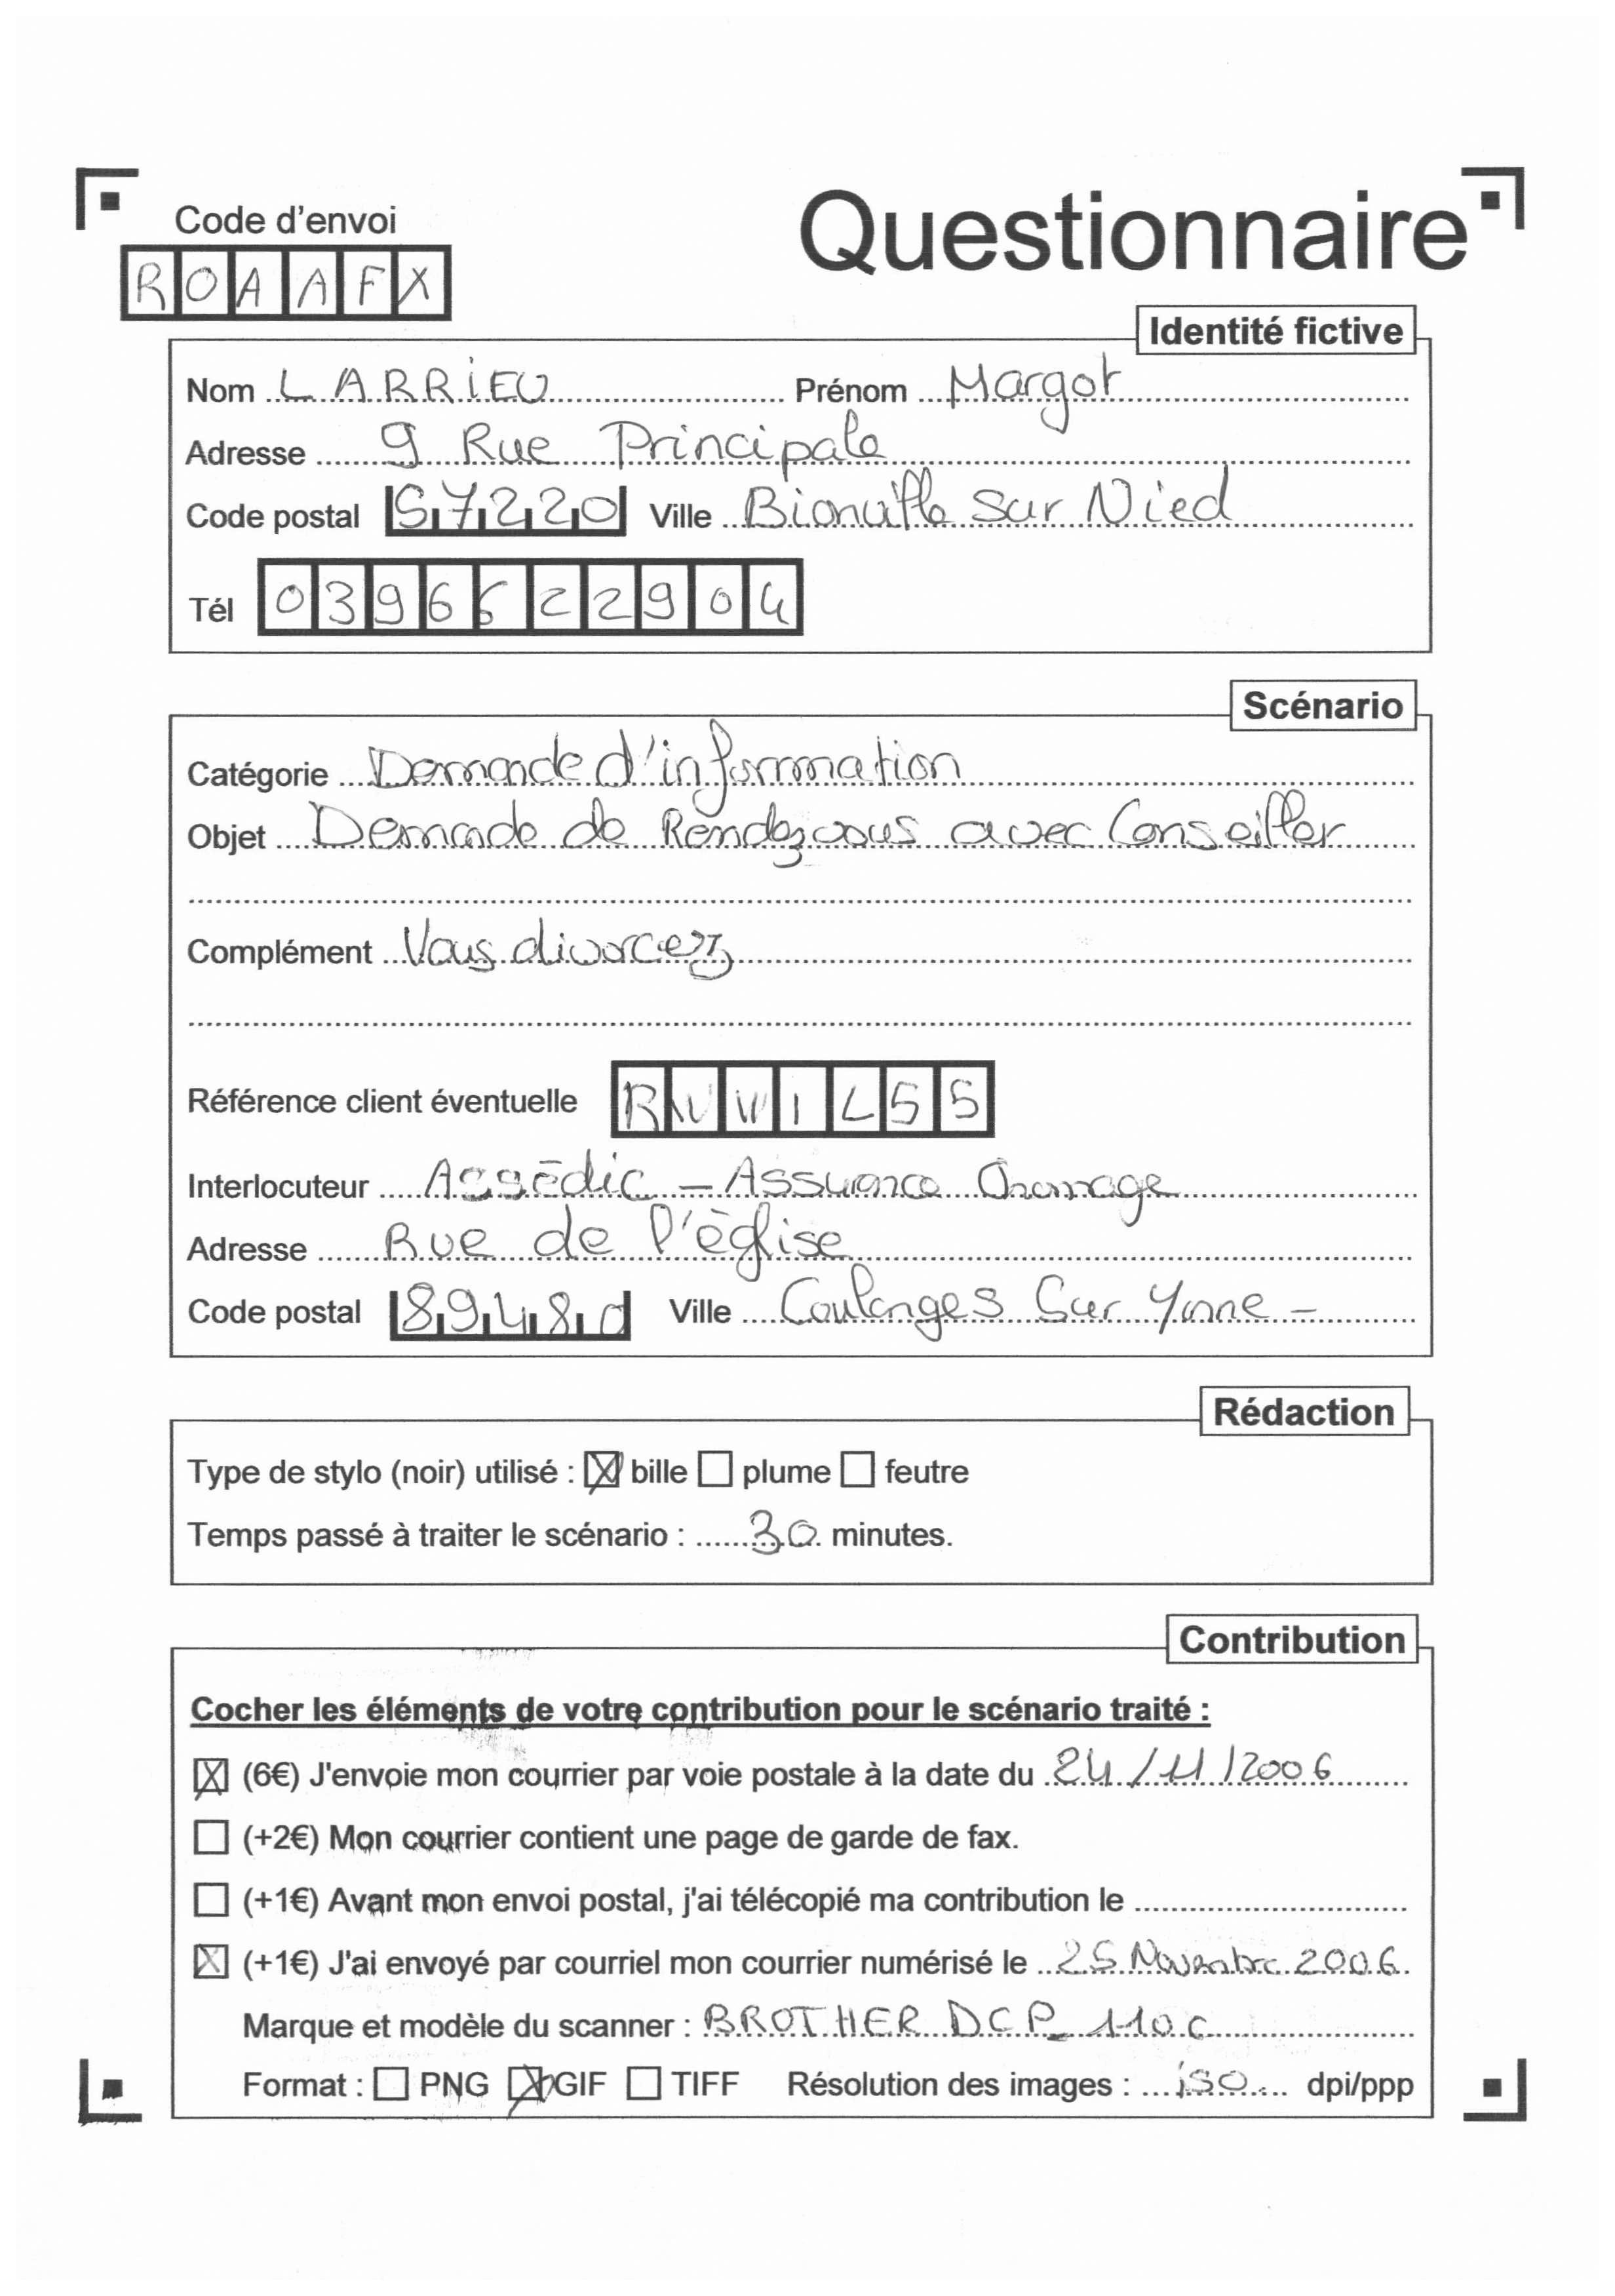 Code d'envoi
Questionnaire
ROAAFX
Identité fictive
Nom LARRIEU Prénom Margot
Adresse 9 Rue Principale
Code postal 57220 Ville Bionville sur Nied
Tél 0396622904
Scénario
Catégorie Demande d'information
Objet Demande de Rendezvous avec Conseiller
Complément Vous divorcez
Référence client éventuelle RNWIL55
Interlocuteur Assédic - Assurance Chomage
Adresse Rue de l'église
Code postal 89480 Ville Coulanges Sur Yonne -
Rédaction
Type de stylo (noir) utilisé : ☒ bille ☐ plume ☐ feutre
Temps passé à traiter le scénario : 30 minutes.
Contribution
Cocher les éléments de votre contribution pour le scénario traité :
☒ (6€) J'envoie mon courrier par voie postale à la date du 24/11/2006
☐ (+2€) Mon courrier contient une page de garde de fax.
☐ (+1€) Avant mon envoi postal, j'ai télécopié ma contribution le
☒ (+1€) J'ai envoyé par courriel mon courrier numérisé le 25 Novembre 2006
Marque et modèle du scanner : BROTHER DCP_110C
Format : ☐ PNG ☒ GIF ☐ TIFF Résolution des images : 150 dpi/ppp